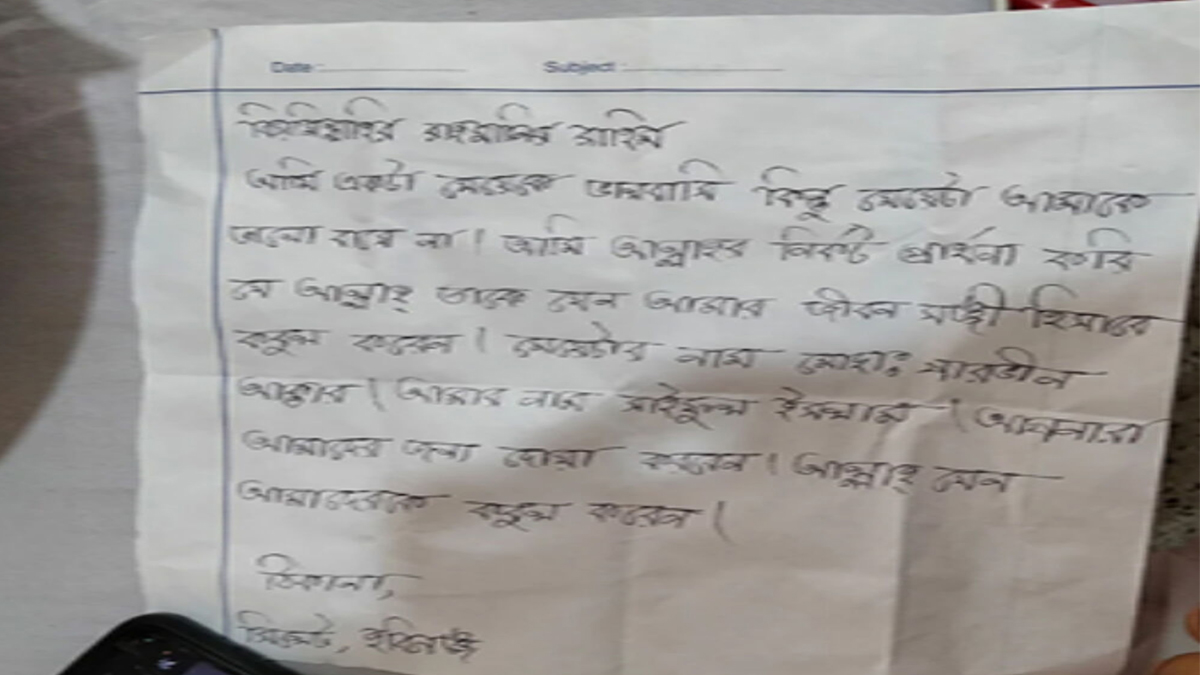 Date: Subject:
বিসমিল্লাহির রাহমানির রাহিম
আমি একটা মেয়েকে ভালবাসি কিন্তু মেয়েটা আমাকে
ভালো বাসে না। আমি আল্লাহর নিকট প্রার্থনা করি
যে আল্লাহ্ তাকে যেন আমার জীবন সঙ্গী হিসাবে
কবুল করেন। মেয়েটার নাম মোছা: শারমীন
আক্তার। আমার নাম সাইদুল ইসলাম। আপনারা
আমাদের জন্য দোয়া করবেন। আল্লাহ্ যেন
আমাদেরকে কবুল করেন।
ঠিকানা,
সিলেট, হবিগঞ্জ